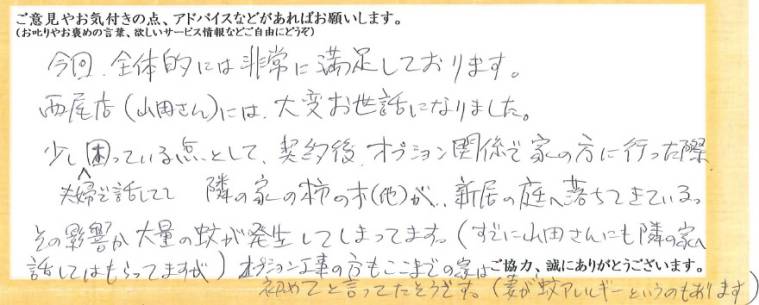 ご意見やお気付きの点、アドバイスなどがあればお願いします。
(お叱りやお褒めの言葉、欲しいサービス情報などご自由にどうぞ)
今回、全体的には非常に満足しております。
西尾店(山田さん)には、大変お世話になりました。
少し困っている点として、契約後、オプション関係で家の方に行った際
夫婦で話してて 隣の家の柿の木(他)が、新居の庭へ落ちてきている。
その影響か大量の蚊が発生してしまってます。(すでに山田さんにも隣の家へ
話してはもらってますが)オプション工事の方もここまでの家は
ご協力、誠にありがとうございます。
初めてと言ってたそうです。(妻が蚊アレルギーというのもあります)